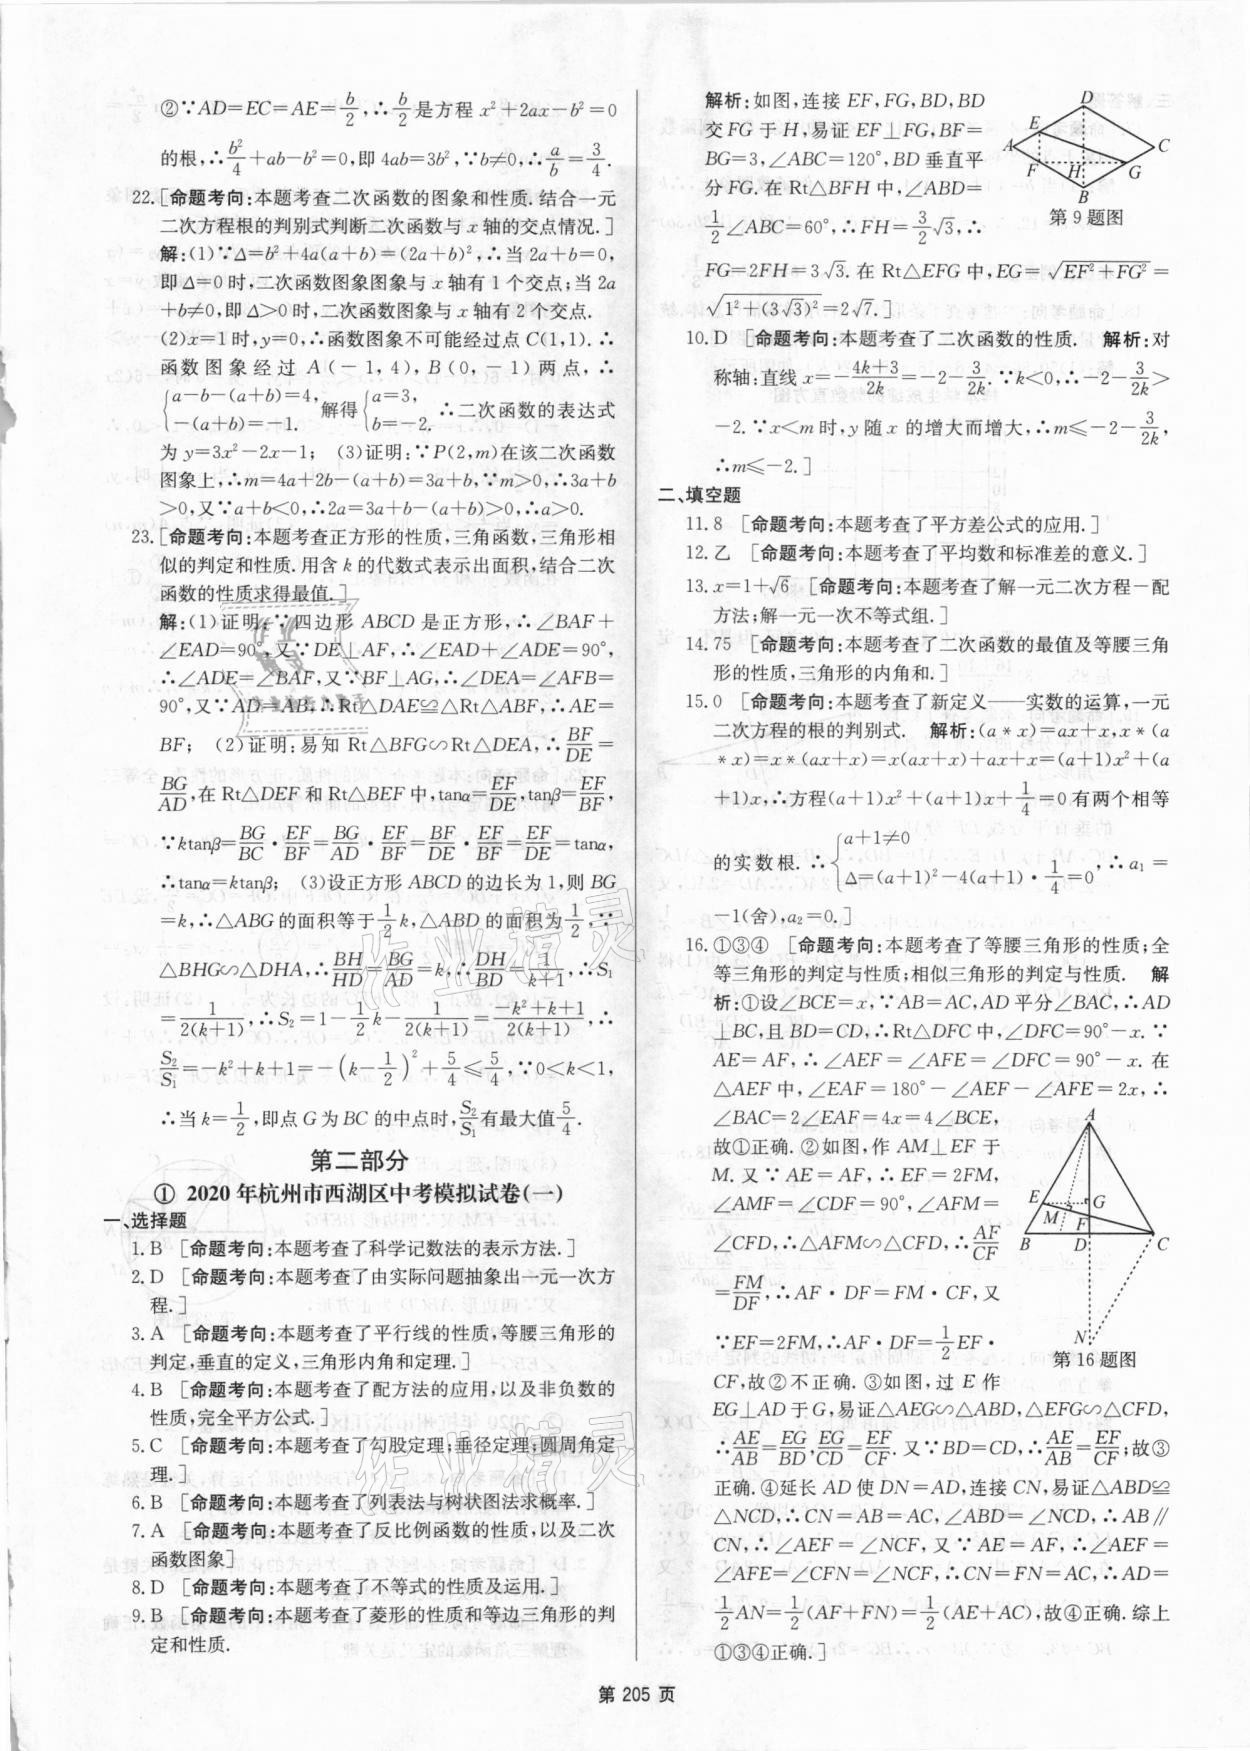 ②∵AD=EC=AE=b/2,∴b/2是方程 x²+2ax-b²=0
的根,∴b²/4+ab-b²=0,即 4ab=3b²,∵b≠0,∴a/b=3/4.
22.[命题考向:本题考查二次函数的图象和性质.结合一元
二次方程根的判别式判断二次函数与 x 轴的交点情况.]
解:(1)∵Δ=b²+4a(a+b)=(2a+b)²,∴当 2a+b=0,
即 Δ=0 时,二次函数图象图象与 x 轴有 1 个交点;当 2a
+b≠0,即 Δ>0 时,二次函数图象与 x 轴有 2 个交点.
(2)x=1 时,y=0,∴函数图象不可能经过点 C(1,1).∴
函数图象经过 A(-1,4),B(0,-1)两点,∴
{a-b-(a+b)=4, -(a+b)=-1. 解得{a=3, b=-2. ∴二次函数的表达式
为 y=3x²-2x-1; (3)证明:∵P(2,m)在该二次函数
图象上,∴m=4a+2b-(a+b)=3a+b,∵m>0,∴3a+b
>0,又∵a+b<0,∴2a=3a+b-(a+b)>0,∴a>0.
23.[命题考向:本题考查正方形的性质,三角函数,三角形相
似的判定和性质.用含 k 的代数式表示出面积,结合二次
函数的性质求得最值.]
解:(1)证明:∵四边形 ABCD 是正方形,∴∠BAF+
∠EAD=90°,又∵DE⊥AF,∴∠EAD+∠ADE=90°,
∴∠ADE=∠BAF,又∵BF⊥AG,∴∠DEA=∠AFB=
90°,又∵AD=AB,∴Rt△DAE≌△Rt△ABF,∴AE=
BF; (2)证明:易知 Rt△BFG∽Rt△DEA,∴BF/DE=
BG/AD,在 Rt△DEF 和 Rt△BEF 中,tanα=EF/DE,tanβ=EF/BF,
∵ktanβ=BG/BC·EF/BF=BG/AD·EF/BF=BF/DE·EF/BF=EF/DE=tanα,
∴tanα=ktanβ; (3)设正方形 ABCD 的边长为 1,则 BG
=k,∴△ABG 的面积等于1/2k,△ABD 的面积为1/2,∵
△BHG∽△DHA,∴BH/HD=BG/AD=k,∴DH/BD=1/(k+1),∴S₁
=1/(2(k+1)),∴S₂=1-1/2k-1/(2(k+1))=(-k²+k+1)/(2(k+1)),∴
S₂/S₁=-k²+k+1=-(k-1/2)²+5/4≤5/4,∵0<k<1,
∴当 k=1/2,即点 G 为 BC 的中点时,S₂/S₁有最大值5/4.
第二部分
① 2020 年杭州市西湖区中考模拟试卷(一)
一、选择题
1.B [命题考向:本题考查了科学记数法的表示方法.]
2.D [命题考向:本题考查了由实际问题抽象出一元一次方
程.]
3.A [命题考向:本题考查了平行线的性质,等腰三角形的
判定,垂直的定义,三角形内角和定理.]
4.B [命题考向:本题考查了配方法的应用,以及非负数的
性质,完全平方公式.]
5.C [命题考向:本题考查了勾股定理;垂径定理;圆周角定
理.]
6.B [命题考向:本题考查了列表法与树状图法求概率.]
7.A [命题考向:本题考查了反比例函数的性质,以及二次
函数图象]
8.D [命题考向:本题考查了不等式的性质及运用.]
9.B [命题考向:本题考查了菱形的性质和等边三角形的判
定和性质.
解析:如图,连接 EF,FG,BD,BD
交 FG 于 H,易证 EF⊥FG,BF=
BG=3,∠ABC=120°,BD 垂直平
分 FG.在 Rt△BFH 中,∠ABD=
1/2∠ABC=60°,∴FH=3/2√3,∴
D
E
A
C
F
H
G
B
第 9 题图
FG=2FH=3√3.在 Rt△EFG 中,EG=√(EF²+FG²)=
√(1²+(3√3)²)=2√7.]
10.D [命题考向:本题考查了二次函数的性质. 解析:对
称轴:直线 x=-(4k+3)/2k=-2-3/2k.∵k<0,∴-2-3/2k>
-2.∵x<m 时,y 随 x 的增大而增大,∴m≤-2-3/2k,
∴m≤-2.]
二、填空题
11.8 [命题考向:本题考查了平方差公式的应用.]
12.乙 [命题考向:本题考查了平均数和标准差的意义.]
13.x=1+√6 [命题考向:本题考查了解一元二次方程-配
方法;解一元一次不等式组.]
14.75 [命题考向:本题考查了二次函数的最值及等腰三角
形的性质,三角形的内角和.]
15.0 [命题考向:本题考查了新定义——实数的运算,一元
二次方程的根的判别式. 解析:(a*x)=ax+x,x*(a
*x)=x*(ax+x)=x(ax+x)+ax+x=(a+1)x²+(a
+1)x,∴方程(a+1)x²+(a+1)x+1/4=0 有两个相等
的实数根.∴{a+1≠0 Δ=(a+1)²-4(a+1)·1/4=0,∴a₁=
-1(舍),a₂=0.]
16.①③④ [命题考向:本题考查了等腰三角形的性质;全
等三角形的判定与性质;相似三角形的判定与性质. 解
析:①设∠BCE=x,∵AB=AC,AD 平分∠BAC,∴AD
⊥BC,且 BD=CD,∴Rt△DFC 中,∠DFC=90°-x.∵
AE=AF,∴∠AEF=∠AFE=∠DFC=90°-x.在
△AEF 中,∠EAF=180°-∠AEF-∠AFE=2x,∴
∠BAC=2∠EAF=4x=4∠BCE,
故①正确.②如图,作 AM⊥EF 于
M.又∵AE=AF,∴EF=2FM,
∠AMF=∠CDF=90°,∠AFM=
∠CFD,∴△AFM∽△CFD,∴AF/CF
=FM/DF,∴AF·DF=FM·CF,又
∵EF=2FM,∴AF·DF=1/2EF·
A
E
G
M
F
B
D
C
N
第 16 题图
CF,故②不正确.③如图,过 E 作
EG⊥AD 于 G,易证△AEG∽△ABD,△EFG∽△CFD,
∴AE/AB=EG/BD,EG/CD=EF/CF.又∵BD=CD,∴AE/AB=EF/CF;故③
正确.④延长 AD 使 DN=AD,连接 CN,易证△ABD≌
△NCD,∴CN=AB=AC,∠ABD=∠NCD,∴AB∥
CN,∴∠AEF=∠NCF,又∵AE=AF,∴∠AEF=
∠AFE=∠CFN=∠NCF,∴CN=FN=AC,∴AD=
1/2AN=1/2(AF+FN)=1/2(AE+AC),故④正确.综上
①③④正确.]
第 205 页
作业精灵
作业精灵